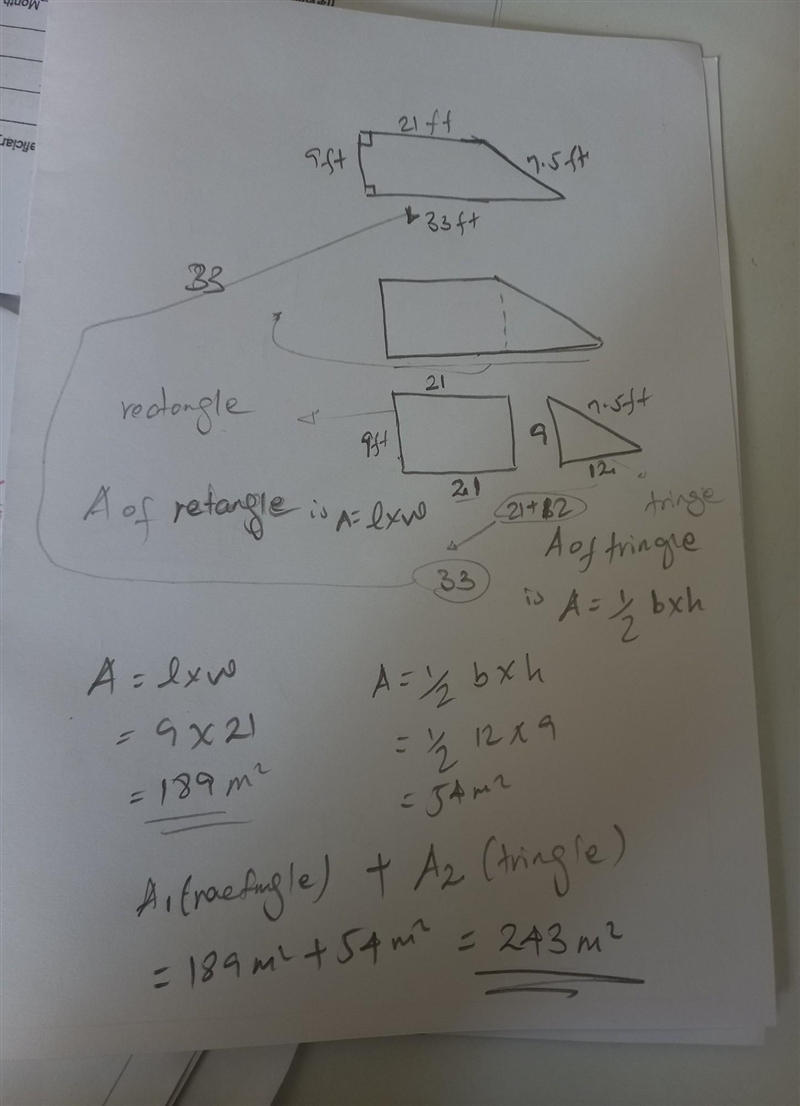 Month
eficiary
21 ft
9ft
7.5ft
33ft
33
21
rectongle
9ft
9
7.5ft
21
12
A of retangle is A=lxw
21+12
tringe
33
A of tringle
is A=½ bxh
A = lxw
= 9 x 21
= 189 m²
A = ½ b x h
= ½ 12 x 9
= 54 m²
A₁ (raetngle) + A₂ (tringle)
= 189 m² + 54 m² = 243 m²